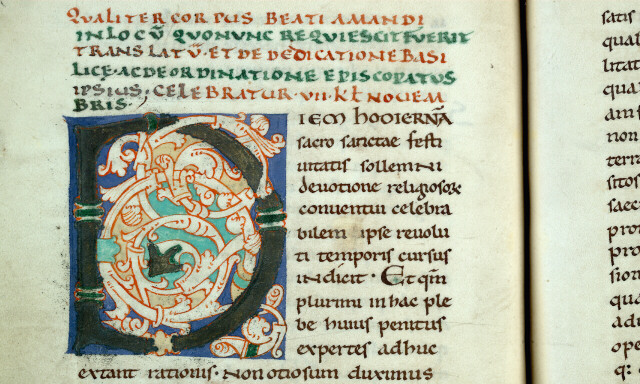 QUALITER CORPUS BEATI AMANDI
IN LOCŪ QUO NUNC REQUIESCIT FUERIT
TRANSLATŪ · ET DE DEDICATIONE BASI
LICE · AC DE ORDINATIONE EPISCOPATUS
IPSIUS; CELEBRATUR · VII · KL NOVEM
BRIS ·
DIEM HODIERNĀ
sacro sanctae festi
uitatis sollemni
deuotione religiosoꝝ
conuentui celebra
bilem ipse reuolu
ti temporis cursus
indicit · Et qm̄
plurimi in hac ple
be huius penitus
expertes adhuc
extant rationis · Non otiosum duximus
satis
qual
litat
qua
non
terra
sitos
saec
prou
sion
qua
adu
ope
q: